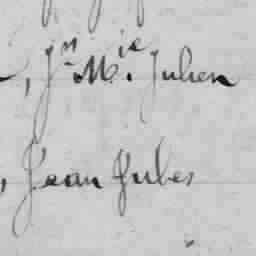 , Jn Mie Julien
, Jean Jules